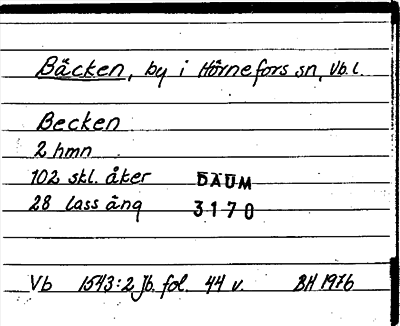 Bäcken, by i Hörnefors sn, Vb. l.
Becken
2 hmn
102 skl. åker DAUM
28 lass äng 3170
Vb 1543:2 Jb. fol. 44 v. BH 1976